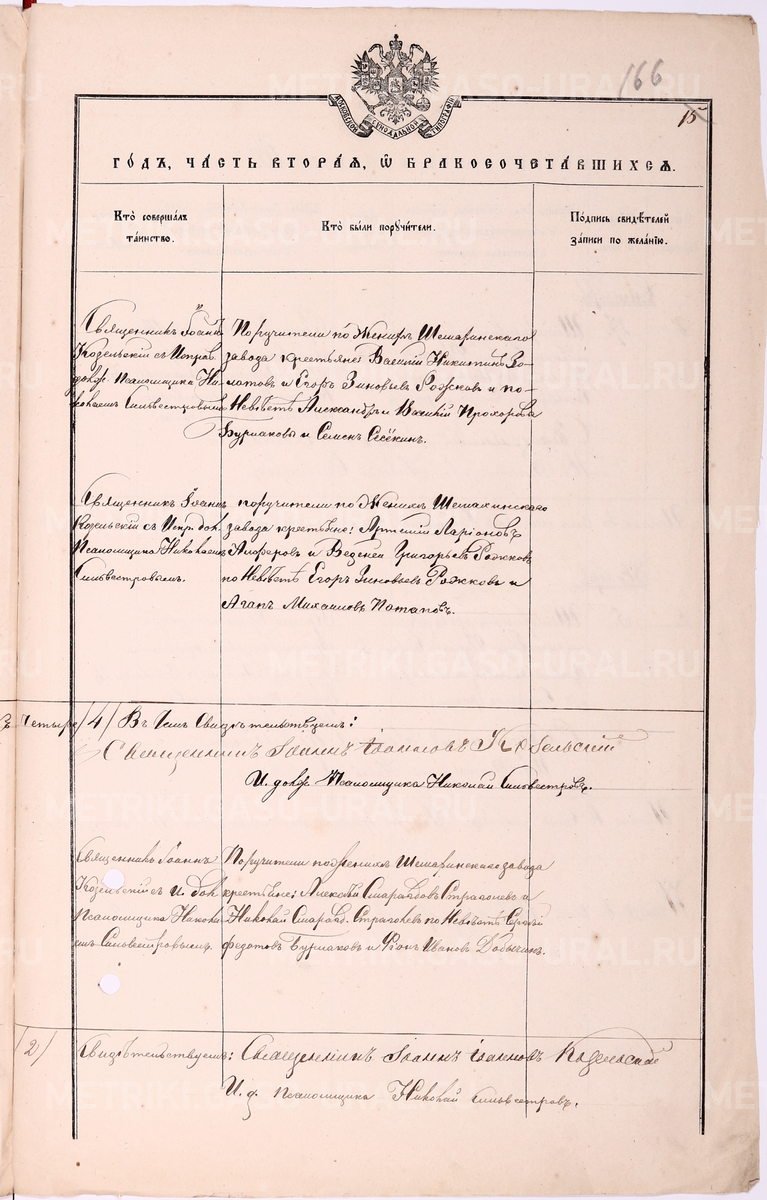 166
15
МОСКОВСКОЙ СѴНОДАЛЬНОЙ ТИПОГРАФІИ
ГО́ДЪ, ЧА́СТЬ ВТОРА́Я, Ѡ҆ БРАКОСОЧЕТА́ВШИХСЯ.
Кто̀ соверша́лъ
та́инство.
Кто̀ бы́ли поручи́тели.
По́дпись свидѣ́телей
за́писи по жела́нію.
Священникъ Іоаннъ
Козельскій съ Исправ.
долж. Псаломщика Ни-
колаемъ Сильвестровымъ
Поручители по Женихѣ Шемахинскаго
завода крестьяне: Василій Никитинъ
и Егоръ Зиновьевъ Рожковъ и по
Невѣстѣ Александръ и Василій Прохоровы
Бурмаковы и Семенъ
Священникъ Іоаннъ
Козельскій съ Испр. дол.
Псаломщика Николаемъ
Сильвестровымъ.
поручители по Женихѣ Шемахинскаго
завода крестьяне: Артемій Ларіоновъ
и Веденей Григорьевъ Рожковъ
по Невѣстѣ Егоръ Зиновьевъ Рожковъ и
Агапъ Михаиловъ Потаповъ.
Четыре /4/ Въ чемъ Свидѣтельствуемъ:
Священникъ Іоаннъ Іоанновъ Козельскій
И. долж. Псаломщика Николай Сильвестровъ.
Священникъ Іоаннъ
Козельскій съ И. дол.
Псаломщика Никола-
емъ Сильвестровымъ.
Поручители по Женихѣ Шемахинскаго завода
крестьяне: Алексѣй и
Николай по Невѣстѣ Сергѣй
Федотовъ Бурмаковъ и Иванов. Добычинъ.
/2/ Свидѣтельствуемъ: Священникъ Іоаннъ Іоанновъ Козельскій
И. д. Псаломщика Николай Сильвестровъ.
METRIKI.GASO-URAL.RU